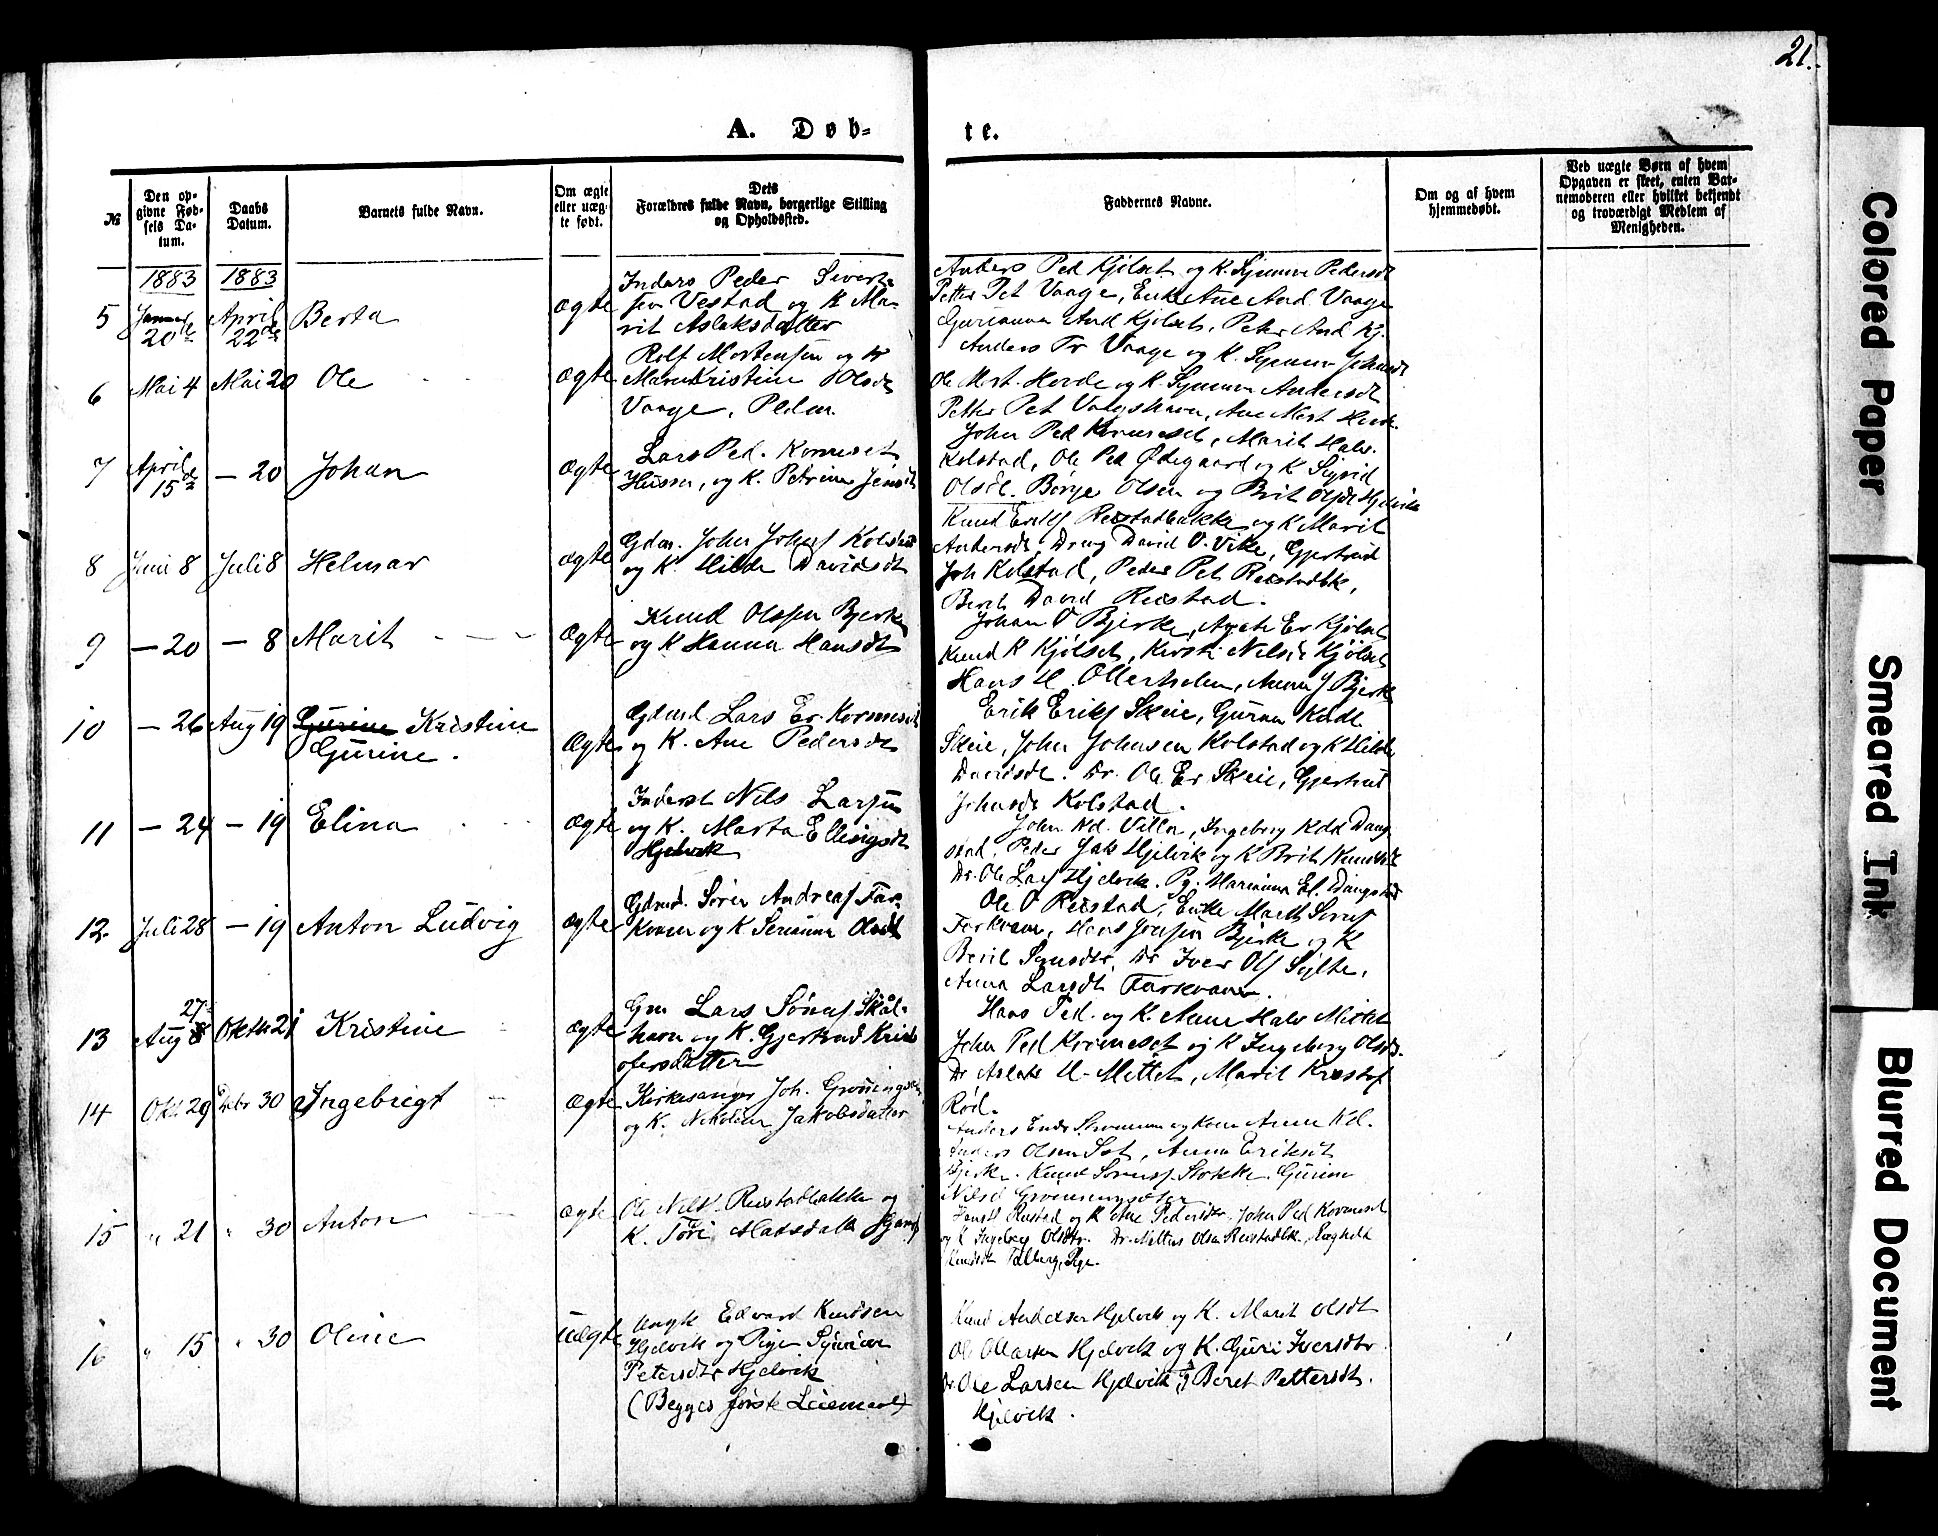 21.
A. Døb-
te.
№
Den op-
givne Fød-
sels Da-
tum.
Daabs
Datum.
Barnets fulde Navn.
Om ægte
eller uæg-
te født.
Dets
Forældres fulde Navn, borgerlige Stilling
og Opholdssted.
Faddernes Navne.
Om og af hvem
hjemmedøbt.
Ved uægte Børn af hvem
Opgaven er skeet, enten Bar-
nemoderen eller hvilket bekjendt
og troværdigt Medlem af
Menigheden.
1883 1883
5 Januar 20de April 22de Berta ægte
Inders Peder Sivert-
sen Vestad og K Ma-
rit Aslaksdatter
Anders Ped Kjølset og K. Synnøve Pedersdt
Petter Pet Vaage, Enke Ane And Vaage
And Kjølset, Peter And Kj.
6 Mai 4 Mai 20 Ole ægte
Rolf Mortensen og K
Maren Kristine Olsdt
Vaage,
Anders Vaage og K. Synnøve
Ole Mort. Horde og K. Synnøve Andersdt
Petter Pet Vaagshavn, Ane Mort
7 April 15de - 20 Johan ægte
Lars Ped. Kormeset
Husm, og K. Petrine Jensdt
John Ped Kormeset, Marit Halv.
Kolstad, Ole Ped Ødegaard og K Sigrid
Olsdt. Børge Olsen og Brit Olsdt Hjelvik
8 Juni 8 Juli 8 Helmar ægte
Gdm. John Johns Kolstad
og K. Hilda Davidsdt
Knud Eriks Reistadbakke og K Marit
Andersdt, Dreng David O. Vike, Gjertrud
Joh Kolstad, Peder Pet Reistadbk,
Berit David Reistad.
9 - 20 - 8 Marit ægte
Knud Olssen Bjerke
og K Hanna Hansdt
Johan O Bjerke, Agate Er Kjølset
Knud K Kjølset, Kirsti Nilsdt Kjølset
Hans H. Ollerholm, Anna J Bjerke
10 - 26 Aug 19 Gurine Kristine
Gurine. Ægte
Gdmd Lars Er. Kormeset
og K. Ane Pedersdt
Erik Eriks Skeie, Guran Kndt
Skeie, John Johnsen Kolstad og K Hilda
Davidsdt. Dr. Ole Er Skeie, Gjertrud
Johnsdt Kolstad.
11 - 24 - 19 Elina ægte
Inderst Nils Larsen
og K. Marta Ellingsdt
Hjelvik
John Kd. Villa, Ingeborg Kdt Daug-
stad, Peder Jak Hjelvik og K Brit Knudsdt
Dr. Ole Lars Hjelvik. Pg. Marianna El. Daugstad
12. Juli 28 - 19 Anton Ludvig ægte
Gdmd. Søren Andreas Tar-
kvam og K Serianna Olsdt
Ole O Reistad, Enke Marit Sørens
Torkvam, Hans Jonsen Bjerke og K
Beril Dr Iver Ols Sylte,
Anna Larsdt Tarkvam.
13 Aug 27 Oktb 21 Kristine ægte
Gm Lars Sørens Skål-
havn og K. Gjertrud Krist-
ofersdatter
Hans Ped. og K. Anne Halv Mittet
John Ped Kormeset og K Ingeborg Olsdt.
Dr Aslak H. Mittet, Marit Kristof
Rød.
14 Okt 29 Debr 30 Ingebrigt ægte
Kirkesanger Joh. Grønningsæter
og K. Nikoline Jakobsdatter
Anders og Kone Anne Kd.
Anders Olsen Set, Anna Eriksdt
Bjerke. Knud Sørens Stokke. Gurine
Nilsd Grønningsæter
15 " 21 " 30 Anton ægte
Ole Nils Reistadbakke og
K. Tori Madsdatt
Hans Reistad og K Ane Pedersdtr. John Ped Kormeset
og K Ingeborg Olsdtr. Dr. Mittus Olsen Reistadbk., Ragnhild
Knudsdt Tolberg, Pge.
16 " 15 " 30 Oline Uægte
Ungk Edvard Knudsen
Hjelvik og Pige Synnøve
Petersdtr Hjelvik
(Begges første Leiermaal)
Knud Andersen Hjelvik og K. Marit Olsdt
Ole Olsen Hjelvik og K. Guri Iversdtr
Dr. Ole Larsen Hjelvik & Beret Pettersdt.
Hjelvik.
Colored Paper
Smeared Ink
Blurred Document